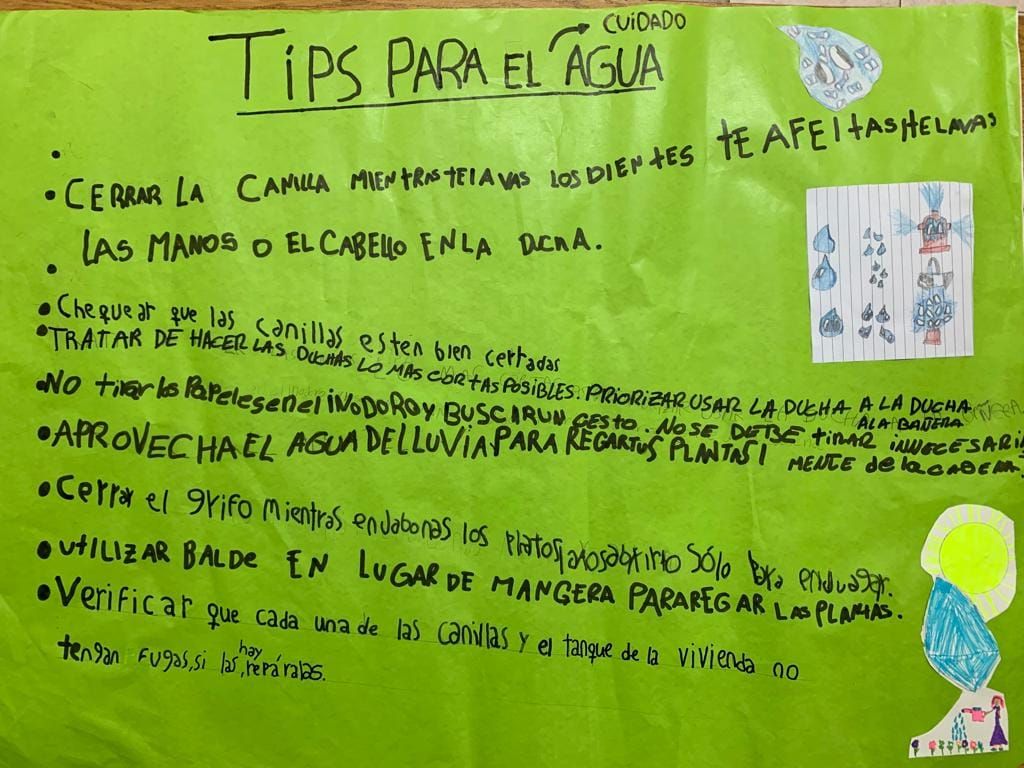 CUIDADO
TiPS PARA EL AGUA
• CERRAR LA CANILLA MIENTRAS TE LAVAS LOS DIENTES TE AFEITAS/TE LAVAS
LAS MANOS O EL CABELLO EN LA DUCHA.
• Chequear que las canillas esten bien cerradas
• TRATAR DE HACER LAS DUCHAS LO MAS CORTAS POSIBLES. PRIORIZAR USAR LA DUCHA A LA DUCHA
A LA BAÑERA
• NO tirar los Papeles en el iNODORO y BUSCIR UN CESTO. NO SE DEBE tiRAR INNECESARIA
MENTE de la CADENA.
• APROVECHA EL AGUA DE LLUVIA PARA REGAR TUS PLANTAS!
• Cerrar el grifo mientras endabonas los platos, abrirlo Sólo para enduagar.
• UtiLIZAR BALDE EN LUGAR DE MANGERA PARA REGAR LAS PLANTAS.
• Verificar que cada una de las canillas y el tanque de la vivienda no
hay
tengan Fugas, si las, repáralas.